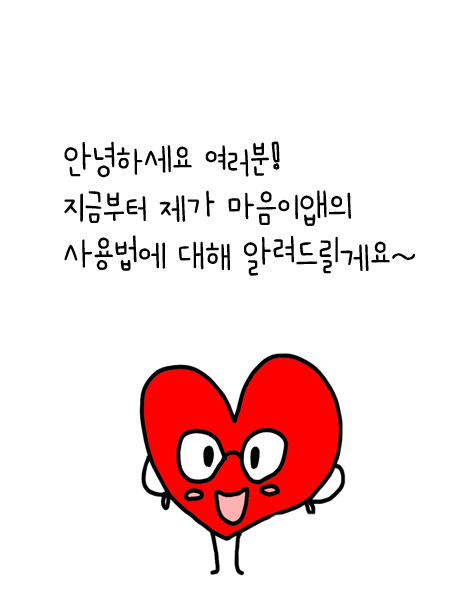 안녕하세요 여러분!
지금부터 제가 마음이앱의
사용법에 대해 알려드릴게요~